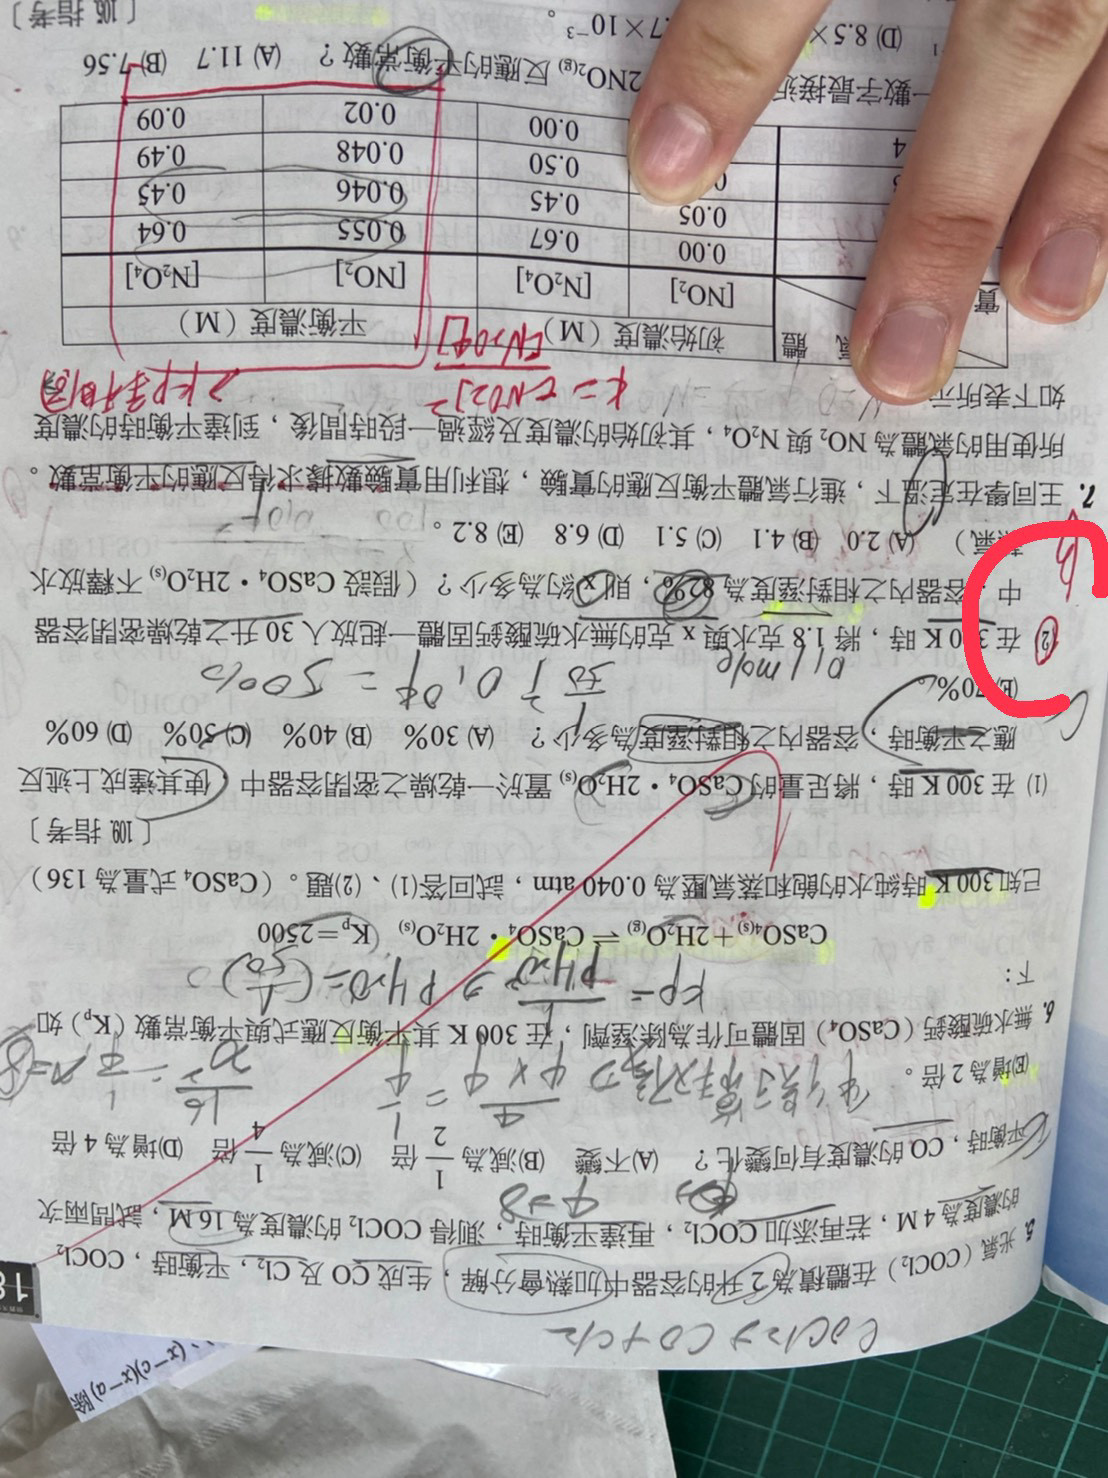 COCl₂ → CO + Cl₂
5. 光氣（COCl₂）在體積為 2 升的容器中加熱會分解，生成 CO 及 Cl₂，平衡時，COCl₂
的濃度為 4 M，若再添加 COCl₂，再達平衡時，測得 COCl₂ 的濃度為 16 M，試問兩次
平衡時，CO 的濃度有何變化？ (A)不變 (B)減為 1/2 倍 (C)減為 1/4 倍 (D)增為 4 倍
(E)增為 2 倍。
6. 無水硫酸鈣（CaSO₄）固體可作為除溼劑，在 300 K 其平衡反應式與平衡常數（Kₚ）如
下：
CaSO₄(s)＋2H₂O(g) ⇌ CaSO₄・2H₂O(s) Kₚ＝2500
已知 300 K 時純水的飽和蒸氣壓為 0.040 atm，試回答(1)、(2)題。（CaSO₄ 式量為 136）
〔109. 指考〕
(1) 在 300 K 時，將足量的 CaSO₄・2H₂O(s) 置於一乾燥之密閉容器中，使其達成上述反
應之平衡時，容器內之相對溼度為多少？ (A) 30% (B) 40% (C) 50% (D) 60%
(E) 70%。
0.1 mole
(2) 在 300 K 時，將 1.8 克水與 x 克的無水硫酸鈣固體一起放入 30 升之乾燥密閉容器
中，容器內之相對溼度為 82%，則 x 約為多少？（假設 CaSO₄・2H₂O(s) 不釋放水
蒸氣） (A) 2.0 (B) 4.1 (C) 5.1 (D) 6.8 (E) 8.2。
B
7. 王同學在定溫下，進行氣體平衡反應的實驗，想利用實驗數據求得反應的平衡常數。
所使用的氣體為 NO₂ 與 N₂O₄，其初始的濃度及經過一段時間後，到達平衡時的濃度
如下表所示。
K = [NO₂]² / [N₂O₄]
氣體 初始濃度（M） 平衡濃度（M）
實 [NO₂] [N₂O₄] [NO₂] [N₂O₄]
0.00 0.67 0.055 0.64
0.05 0.45 0.046 0.45
0.50 0.048 0.49
4 0.00 0.02 0.09
一數字最接近 2NO₂(g) 反應的平衡常數？ (A) 11.7 (B) 7.56
(D) 8.5× 7×10⁻³。
〔105. 指考〕